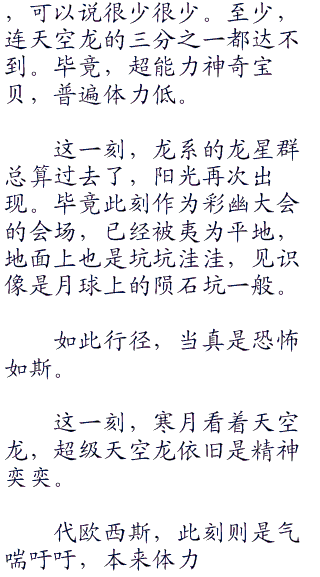 ，可以说很少很少。至少，
连天空龙的三分之一都达不
到。毕竟，超能力神奇宝
贝，普遍体力低。
这一刻，龙系的龙星群
总算过去了，阳光再次出
现。毕竟此刻作为彩幽大会
的会场，已经被夷为平地，
地面上也是坑坑洼洼，见识
像是月球上的陨石坑一般。
如此行径，当真是恐怖
如斯。
这一刻，寒月看着天空
龙，超级天空龙依旧是精神
奕奕。
代欧西斯，此刻则是气
喘吁吁，本来体力